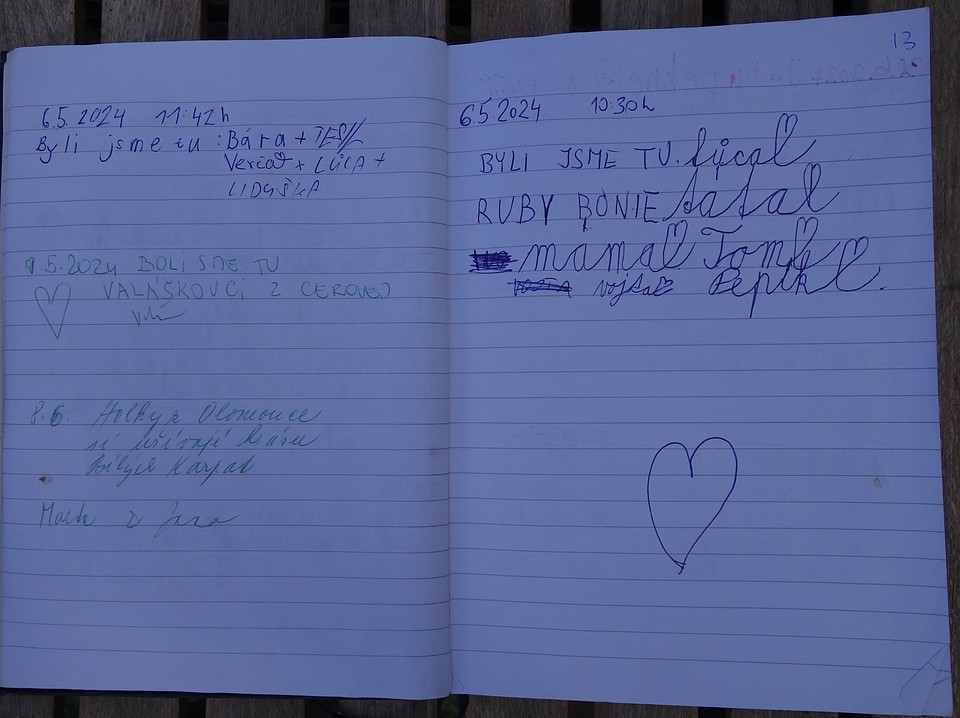 6.5. 2024 11:42h
Byli jsme tu : Bára +
Verča + LÚCA +
LIDUŠKA
5.2024 BOLI SME TU
VALÁŠKOVCI Z CEROVEJ
8.6. Holky z Olomouce
si užívají krásu
Bílých Karpat
13
6.5 2024 10:30h
BYLI JSME TU.
RUBY BONIE tata
mama Tom
vojta Pepik.